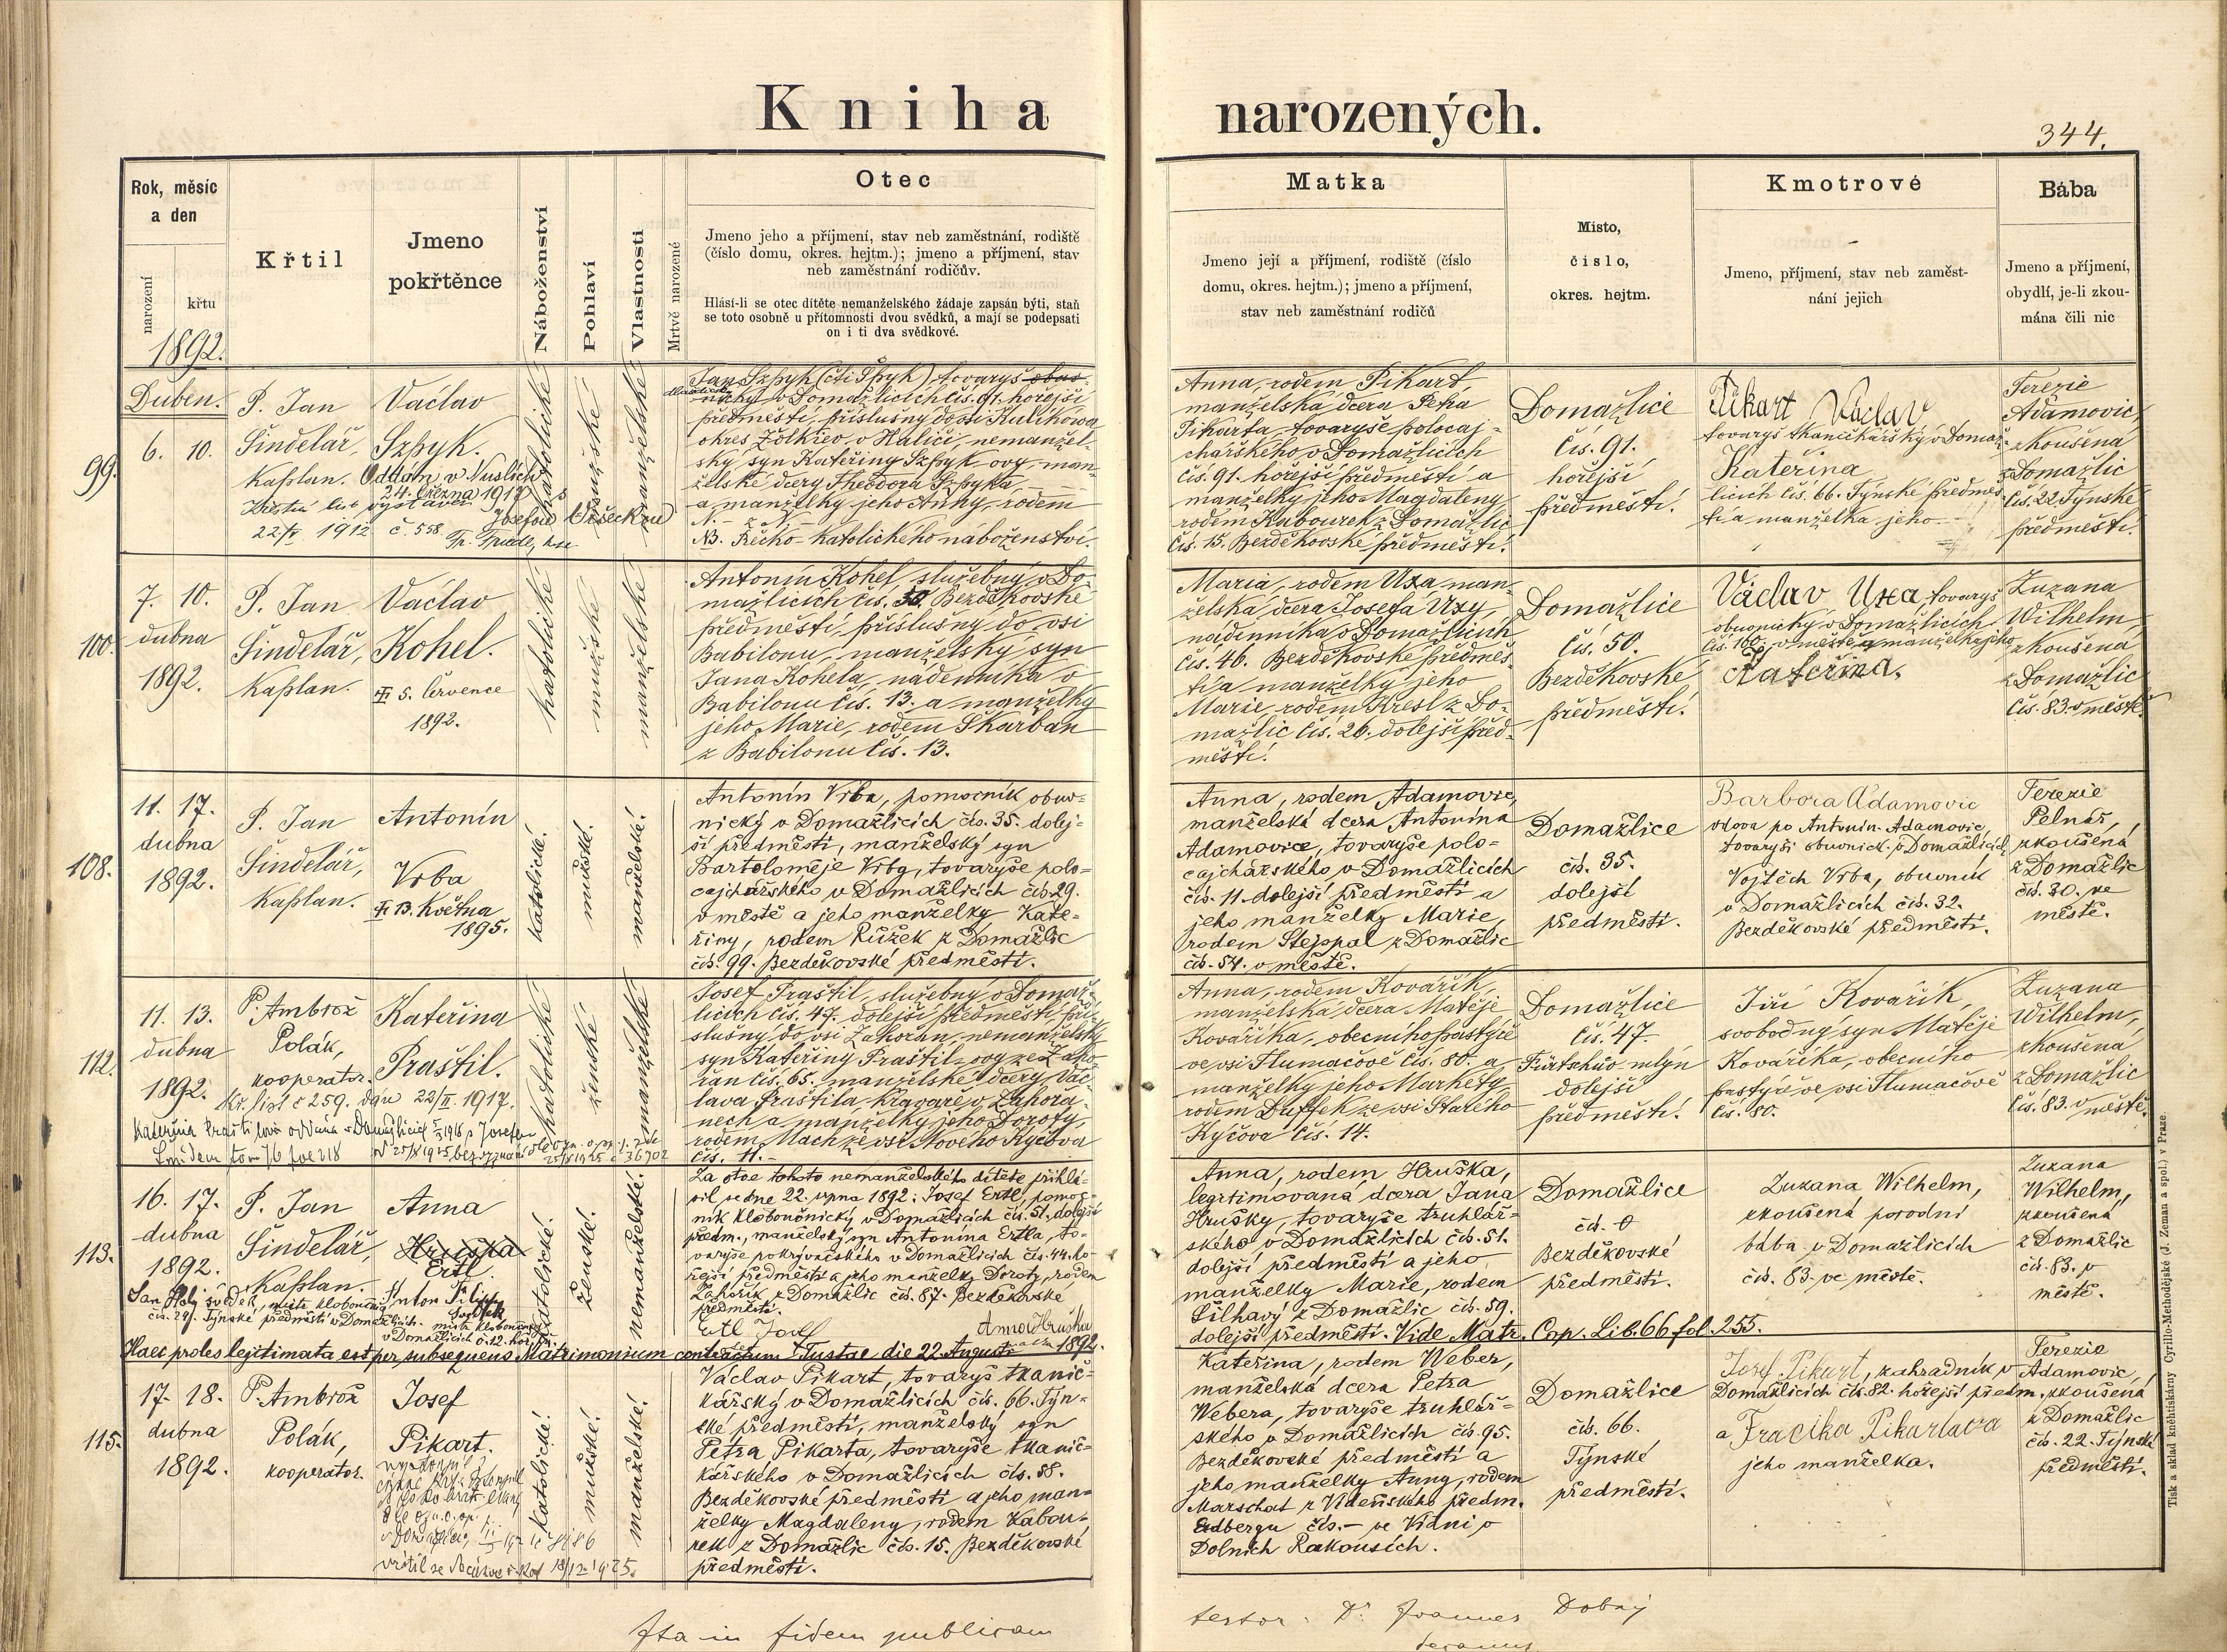 Kniha narozených.
344.
Rok, měsíc
a den
narození
křtu
1892.
Křtil
Jmeno
pokřtěnce
Náboženství
Pohlaví
Vlastnosti
Mrtvě narozené
Otec
Jmeno jeho a příjmení, stav neb zaměstnání, rodiště
(číslo domu, okres. hejtm.); jmeno a příjmení, stav
neb zaměstnání rodičův.
Hlásí-li se otec dítěte nemanželského žádaje zapsán býti, staň
se toto osobně u přítomnosti dvou svědků, a mají se podepsati
on i ti dva svědkové.
Matka
Jmeno její a příjmení, rodiště (číslo
domu, okres. hejtm.); jmeno a příjmení,
stav neb zaměstnání rodičů
Místo,
číslo,
okres. hejtm.
Kmotrové
Jmeno, příjmení, stav neb zaměst-
nání jejich
Bába
Jmeno a příjmení,
obydlí, je-li zkou-
mána čili nic
99.
Duben.
6. 10.
P. Jan
Šindelář,
Kaplan.
Václav
Szpyk.
Oddán v Nuslích
24. března 1917 s
Josefou
Křestní list vystaven
22/V 1912 č. 558
katolické
mužské
manželské
Jan Szpyk (čti Špyk) tovaryš
v Domažlicích čís. 91. hořejší
předměstí, příslušný do vsi Kulikowa
okres Žolkiew v Haliči, nemanžel-
ský syn Kateřiny Szpyk-ovy, man-
želské dcery Theodora Szpyka
a manželky jeho Anny, rodem
N. z N.
NB. Řecko-katolického náboženství.
Anna, rodem Pikart,
manželská dcera Petra
Pikarta, tovaryše polocaj-
chářského v Domažlicích
čís. 91. hořejší předměstí a
manželky jeho Magdaleny
rodem Kabourek z Domažlic
čís. 15. Bezděkovské předměstí.
Domažlice
čís. 91.
hořejší
předměstí.
Pikart Václav
tovaryš tkaničkářský v Domaž-
Kateřina
licích čís. 66. Týnské předměs-
tí a manželka jeho
Terezie
Adamovic,
zkoušená
z Domažlic
čís. 22. Týnské
předměstí.
100.
7. 10.
dubna
1892.
P. Jan
Šindelář,
Kaplan.
Václav
Kohel.
5. července
1892.
katolické
mužské
manželské
Antonín Kohel, služebný v Do-
mažlicích čís. 50. Bezděkovské
předměstí, příslušný do vsi
Babilonu, manželský syn
Jana Kohela, nádenníka v
Babilonu čís. 13. a manželky
jeho Marie, rodem Škarban
z Babilonu čís. 13.
Maria, rodem Uxa, man-
želská dcera Josefa Uxy,
nádenníka v Domažlicích
čís. 46. Bezděkovské předměs-
tí a manželky jeho
Marie, rodem Kresl z Do-
mažlic čís. 26. dolejší před-
městí.
Domažlice
čís. 50.
Bezděkovské
předměstí.
Václav Uxa, tovaryš
obuvnický v Domažlicích
čís. 160. v městě a manželka jeho
Kateřina.
Zuzana
Wilhelm,
zkoušená
z Domažlic
čís. 83. v městě.
108.
11. 17.
dubna
1892.
P. Jan
Šindelář,
Kaplan.
Antonín
Vrba
13. Května
1895.
katolické.
mužské.
manželské.
Antonín Vrba, pomocník obuv-
nický v Domažlicích čís. 35. dolej-
ší předměstí, manželský syn
Bartoloměje Vrby, tovaryše polo-
cajchářského v Domažlicích čís. 29.
v městě a jeho manželky Kate-
řiny, rodem Růžek z Domažlic
čís. 99. Bezděkovské předměstí.
Anna, rodem Adamovic,
manželská dcera Antonína
Adamovice, tovaryše polo-
cajchářského v Domažlicích
čís. 11. dolejší předměstí a
jeho manželky Marie,
rodem Stejspal z Domažlic
čís. 54. v městě.
Domažlice
čís. 35.
dolejší
předměstí.
Barbora Adamovic
vdova po Antonín. Adamovic,
tovaryši obuvnick. v Domažlicích,
Vojtěch Vrba, obuvník
v Domažlicích čís. 32.
Bezděkovské předměstí.
Terezie
Pelnář,
zkoušená
z Domažlic
čís. 30. ve
městě.
112.
11. 13.
dubna
1892.
P. Ambrož
Polák,
kooperator.
Kateřina
Praštil.
Kř. list č 259. dán 22/II. 1917.
katolické
ženské
manželské
Josef Praštil, služebný v Domaž-
licích čís. 47. dolejší předměstí, pří-
slušný do vsi Zahořan, nemanželský
syn Kateřiny Praštil-ovy ze Zaho-
řan čís. 65. manželské dcery Vác-
lava Praštila, kravaře v Zahořa-
nech a manželky jeho Doroty,
rodem Mach ze vsi Nového Kyčova
čís. 11.
Anna, rodem Kovářík,
manželská dcera Matěje
Kováříka, obecního pastýře
ve vsi Tlumačově čís. 80. a
manželky jeho Markéty,
rodem Duffek ze vsi Starého
Kyčova čís. 14.
Domažlice
čís. 47.
Fürtehův mlýn
dolejší
předměstí.
Jiří Kovářík,
svobodný syn Matěje
Kováříka, obecního
pastýře ve vsi Tlumačově
čís. 80.
Zuzana
Wilhelm,
zkoušená
z Domažlic
čís. 83. v městě.
113.
16. 17.
dubna
1892.
P. Jan
Šindelář,
Kaplan.
Anna
Hruška
Ertl
katolické.
ženské.
nemanželské.
Za otce tohoto nemanželského dítěte přihlá-
sil se dne 22. srpna 1892: Josef Ertl, pomoc-
ník kloboučnický v Domažlicích čís. 51. dolejší
předm., manželský syn Antonína Ertla, to-
varyše pokrývačského v Domažlicích čís. 44. ho-
řejší předměstí a jeho manželky Doroty, rodem
Zahořík z Domažlic čís. 87. Bezděkovské
předměstí.
Ertl Josef
Anna Hruška
Jan svědek, mistr kloboučnic.
čís. 29. Týnské předměstí v Domažlicích.
Anton
svědek
mistr kloboučnic.
v Domažlicích č. 12. hoř. př.
Anna, rodem Hruška,
legitimovaná dcera Jana
Hrušky, tovaryše truhlář-
ského v Domažlicích čís. 51.
dolejší předměstí a jeho
manželky Marie, rodem
Šilhavý z Domažlic čís. 59.
dolejší předměstí. Vide Matr. Cop. Lib. 66 fol. 255.
Domažlice
čís. 0
Bezděkovské
předměstí.
Zuzana Wilhelm,
zkoušená porodní
bába v Domažlicích
čís. 83. ve městě.
Zuzana
Wilhelm,
zkoušená
z Domažlic
čís. 83. v
městě.
Haec proles legitimata est per subsequens Matrimonium contractum Tustae die 22. Augusti 1892.
115.
17. 18.
dubna
1892.
P. Ambrož
Polák,
kooperator.
Josef
Pikart.
katolické.
mužské.
manželské.
Václav Pikart, tovaryš tkanič-
kářský v Domažlicích čís. 66. Týn-
ské předměstí, manželský syn
Petra Pikarta, tovaryše tkanič-
kářského v Domažlicích čís. 88.
Bezděkovské předměstí a jeho man-
želky Magdaleny, rodem Kabou-
rek z Domažlic čís. 15. Bezděkovské
předměstí.
Kateřina, rodem Weber,
manželská dcera Petra
Webera, tovaryše truhlář-
ského v Domažlicích čís. 95.
Bezděkovské předměstí a
jeho manželky Anny, rodem
Marschat z Vídeňského předm.
Erdbergu čís. – ve Vídni v
Dolních Rakousích.
Domažlice
čís. 66.
Týnské
předměstí.
Josef Pikart, zahradník v
Domažlicích čís. 82. hořejší předm.
a Fracika Pikartava
jeho manželka.
Terezie
Adamovic,
zkoušená
z Domažlic
čís. 22. Týnské
předměstí.
Ita in fidem publicam
testor: Dr. Joannes Dobrý
decanus
Tisk a sklad knihtiskárny Cyrillo-Methodějské (J. Zeman a spol.) v Praze.